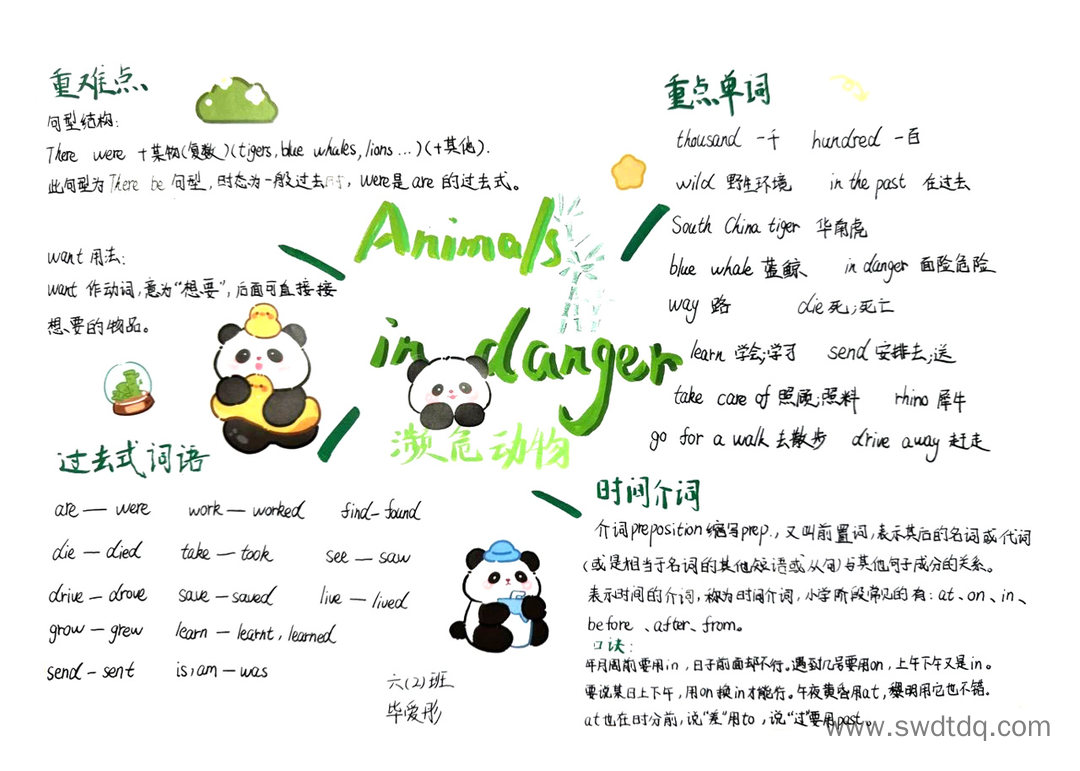 重难点、
句型结构:
There were +某物(复数)(tigers, blue whales, lions ...)(+其他).
此句型为 There be 句型, 时态为一般过去时, were是 are 的过去式。
want 用法:
want 作动词, 意为“想要”, 后面可直接接
想要的物品。
Animals
in danger
濒危动物
重点单词
thousand 一千 hundred 一百
wild 野生环境 in the past 在过去
South China tiger 华南虎
blue whale 蓝鲸 in danger 面险危险
way 路 die 死;死亡
learn 学会;学习 send 安排去;送
take care of 照顾;照料 rhino 犀牛
go for a walk 去散步 drive away 赶走
过去式词语
are — were work — worked find - found
die — died take — took see — saw
drive — drove save — saved live — lived
grow — grew learn — learnt, learned
send - sent is, am — was
六(2)班
毕爱彤
时间介词
介词preposition 缩写prep., 又叫前置词, 表示其后的名词或代词
(或是相当于名词的其他短语或从句)与其他句子成分的关系。
表示时间的介词, 称为时间介词, 小学阶段常见的有: at、on、in、
before 、after、from。
口诀:
年月周前要用in, 日子前面却不行。遇到几号要用on, 上午下午又是in。
要说某日上下午, 用on 换in才能行。午夜黄昏用at, 黎明用它也不错.
at也在时分前, 说“差”用to, 说“过”要用past。
www.swdtdq.com